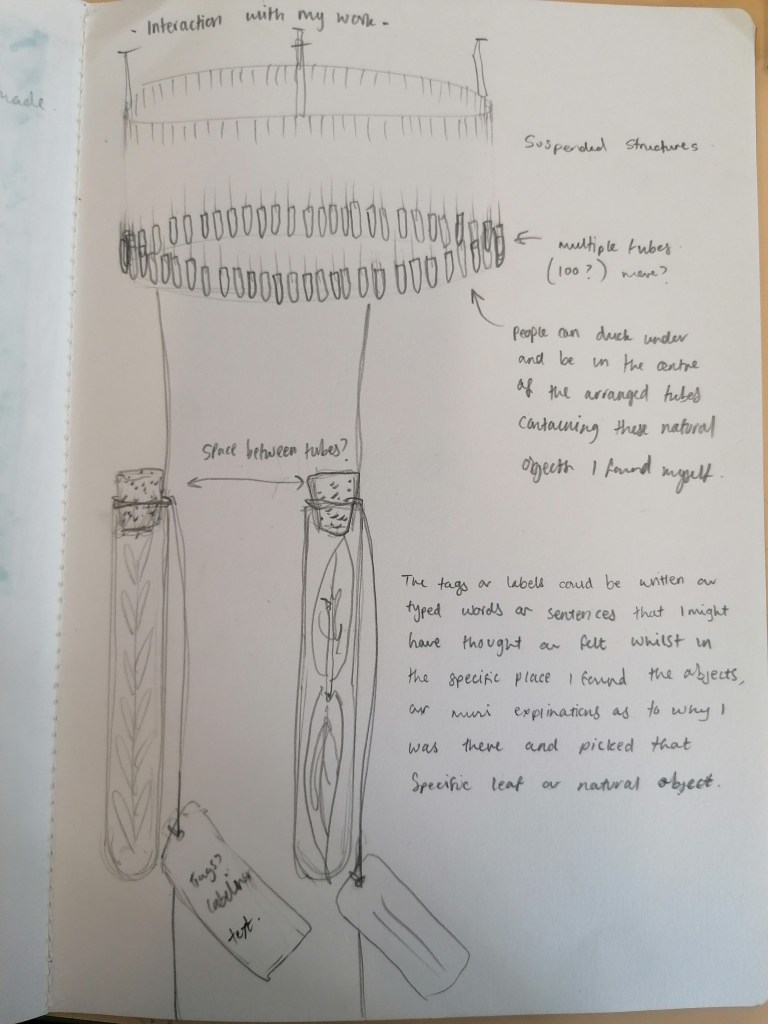 - Interaction with my work -
made.
Suspended structures
multiple tubes.
(100?) more?
people can duck under
and be in the centre
of the arranged tubes
containing these natural
objects I found myself.
Space between tubes?
The tags or labels could be written or
typed words or sentences that I might
have thought or felt whilst in
the specific place I found the objects,
or mini explinations as to why I
was there and picked that
specific leaf or natural object.
Tags?
labeling
text.